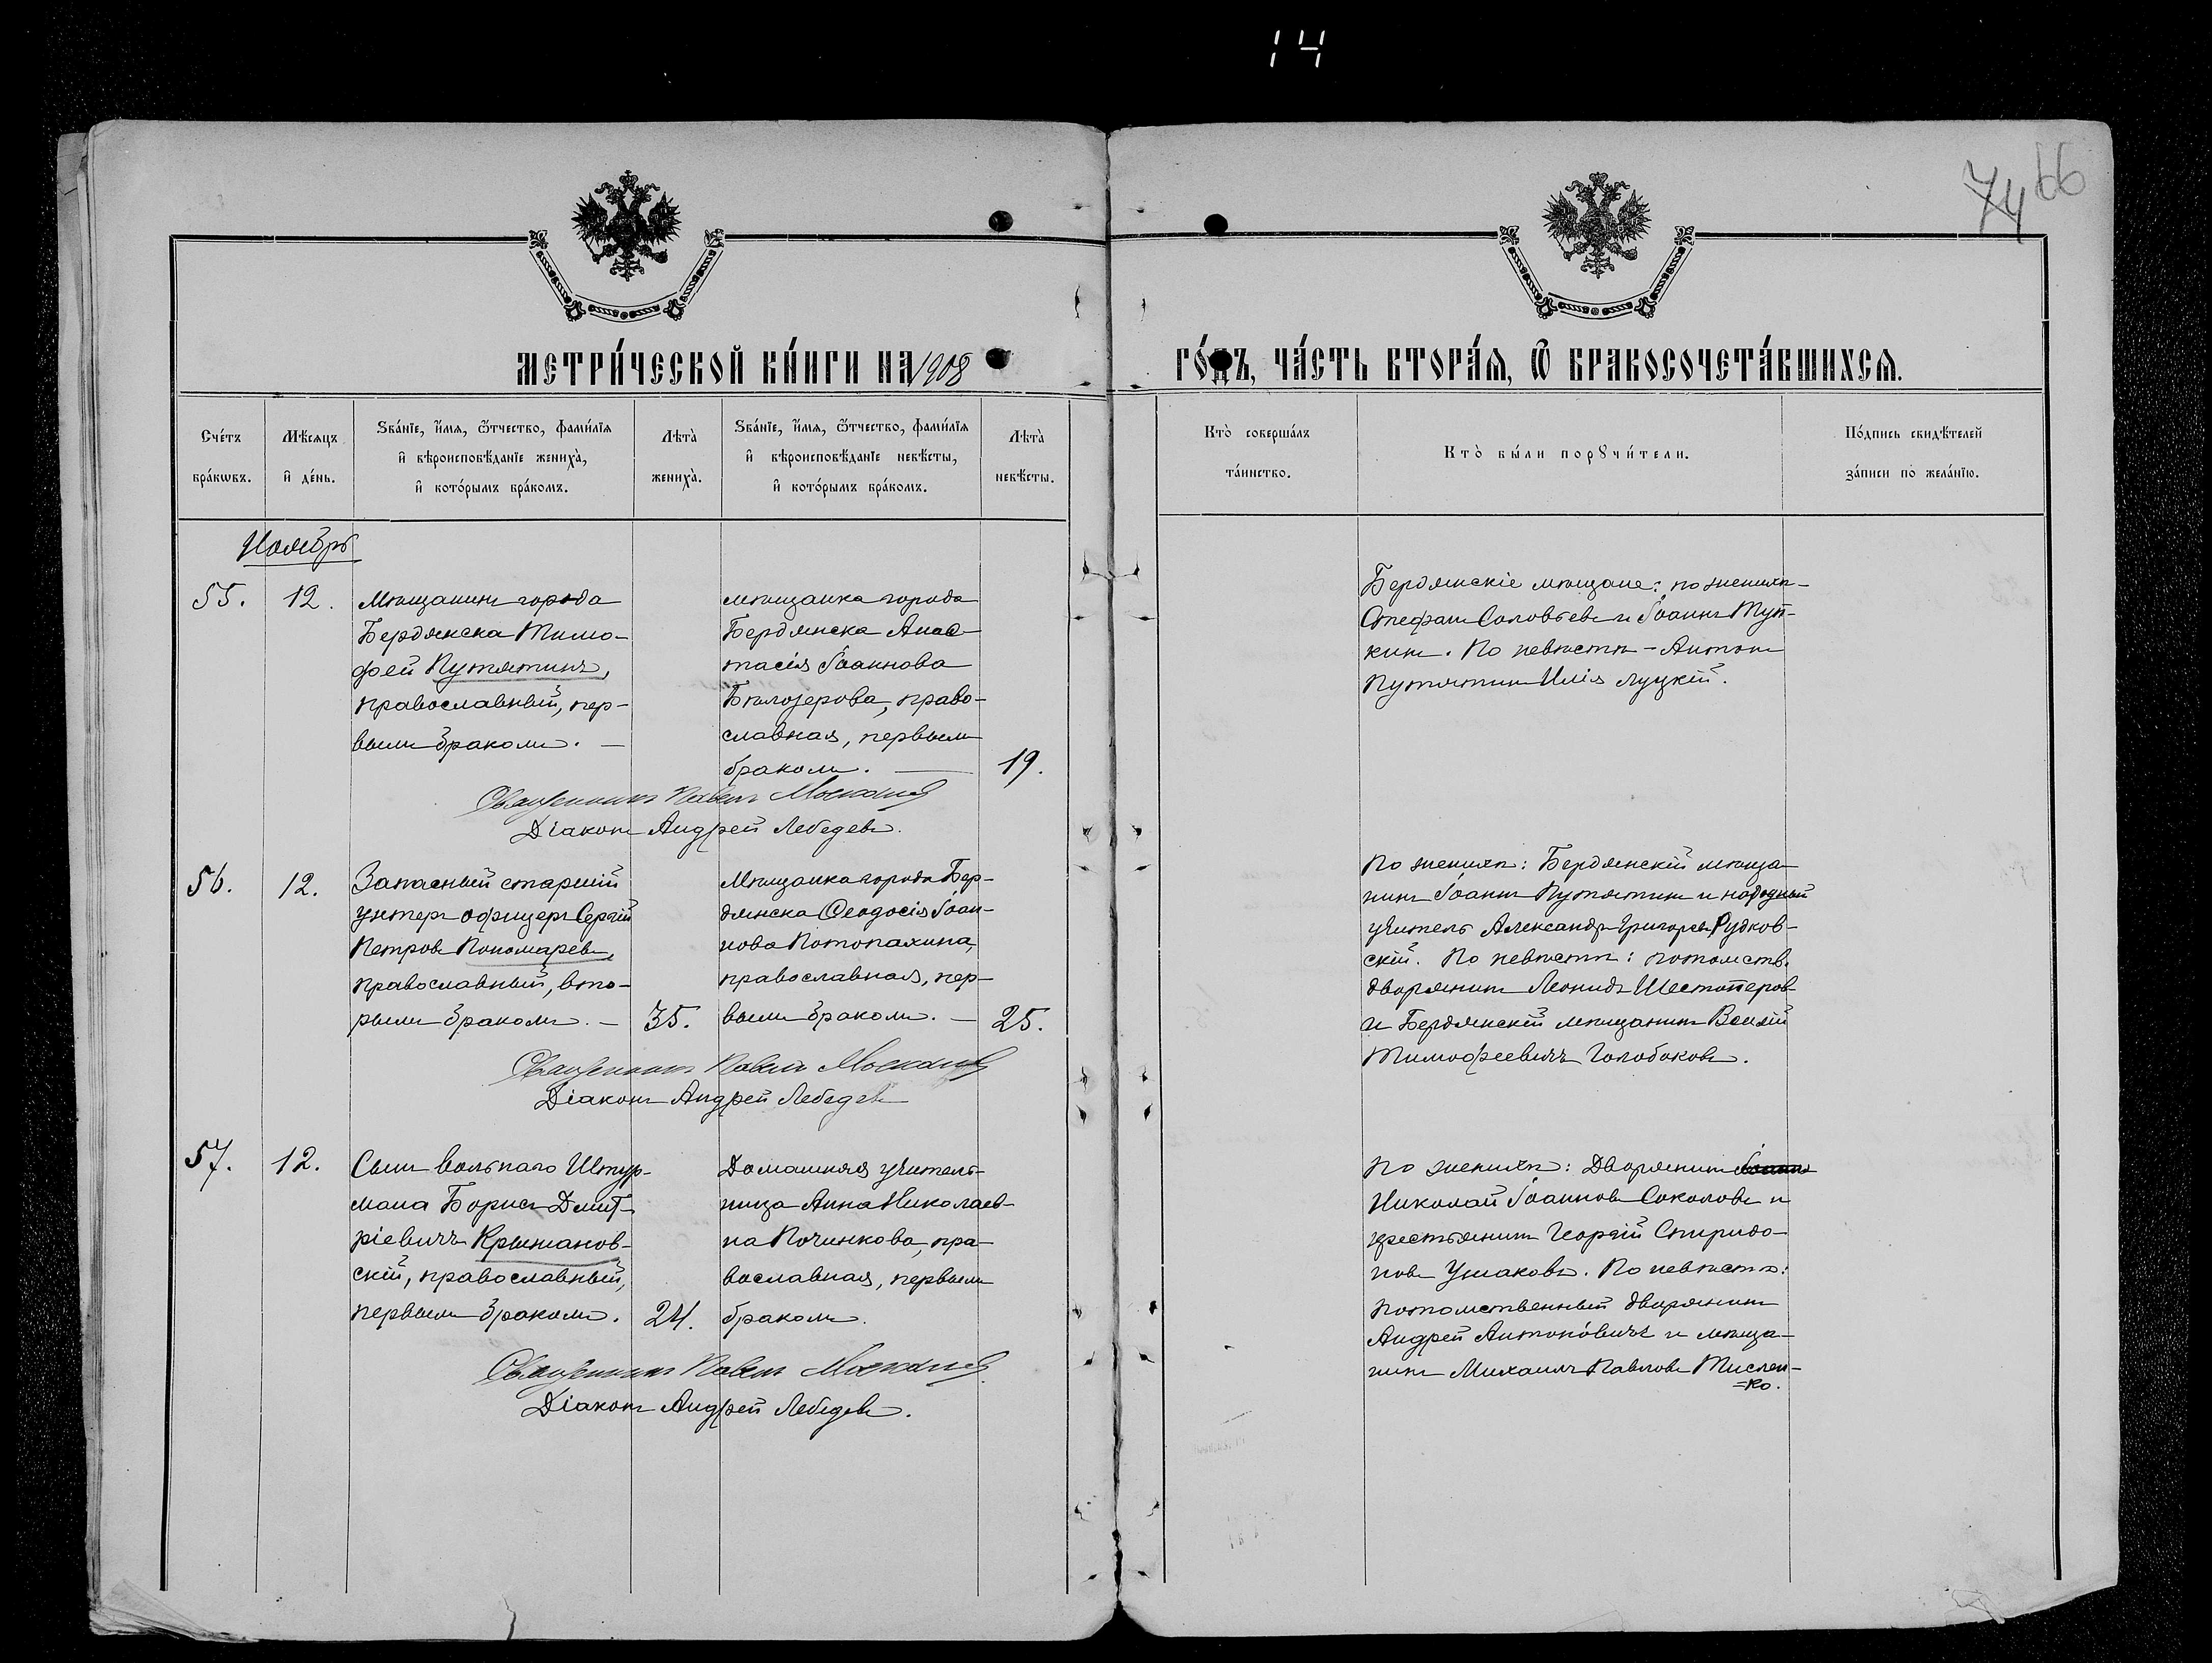 14
74 66
МЕТРИ́ЧЕСКОЙ КНИ́ГИ НА 1908
ГО́ДЪ, ЧА́СТЬ ВТОРА́Я, Ѿ БРАКОСОЧЕТА́ВШИХСЯ.
Сче́тъ
бра́кѡвъ.
Мѣ́сяцъ
и҆ де́нь.
Ѕва́нїе, и҆́мя, ѻ҆́тчество, фами́лїя
и҆ вѣроисповѣ́данїе жениха̀,
и҆ кото́рымъ бра́комъ.
Лѣта̀
жениха̀.
Ѕва́нїе, и҆́мя, ѻ҆́тчество, фами́лїя
и҆ вѣроисповѣ́данїе невѣ́сты,
и҆ кото́рымъ бра́комъ.
Лѣта̀
невѣ́сты.
Кто̀ соверша́лъ
та́инство.
Кто̀ бы́ли порꙋчи́тели.
По́дпись свидѣ́телей
за́писи по жела́нїю.
Ноябрь
55.
12.
Мѣщанинъ города
Бердянска Тимо-
фей Путятинъ,
православный, пер-
вымъ бракомъ. —
мѣщанка города
Бердянска Анас-
тасія Іоаннова
Бѣлозерова, право-
славная, первымъ
бракомъ. —
19.
Бердянскіе мѣщане: по женихѣ-
Стефанъ Соловьевъ и Іоаннъ Туп-
кинъ. По невѣстѣ - Антонъ
Путятинъ Илія Луцкій.
Священникъ Павелъ
Діаконъ Андрей Лебедевъ.
56.
12.
Запасный старшій
унтеръ офицеръ Сергій
Петровъ Пономаревъ,
православный, вто-
рымъ бракомъ. —
35.
Мѣщанка города Бер-
дянска Ѳеодосія Іоан-
нова Потопахина,
православная, пер-
вымъ бракомъ. —
25.
По женихѣ: Бердянскій мѣща-
нинъ Іоаннъ Путятинъ и народный
учитель Александръ Григорьевъ Рудков-
скій. По невѣстѣ: потомств.
дворянинъ Леонидъ Шестоперовъ
и Бердянскій мѣщанинъ
Тимофеевичъ Голобоковъ.
Священникъ Павелъ
Діаконъ Андрей Лебедевъ
57.
12.
Сынъ вольнаго Штур-
мана Борисъ Дмит-
ріевичъ Крыжанов-
скій, православный,
первымъ бракомъ.
24.
Домашняя учитель-
ница Анна Николаев-
на Починкова, пра-
вославная, первымъ
бракомъ.
По женихѣ: Дворянинъ Іоаннъ
Николай Іоанновъ Соколовъ и
крестьянинъ Георгій Спиридо-
новъ Ушаковъ. По невѣстѣ:
потомственный дворянинъ
Андрей Антоновичъ и мѣща-
нинъ Михаилъ Павловъ Тислен-
=ко.
Священникъ Павелъ
Діаконъ Андрей Лебедевъ.